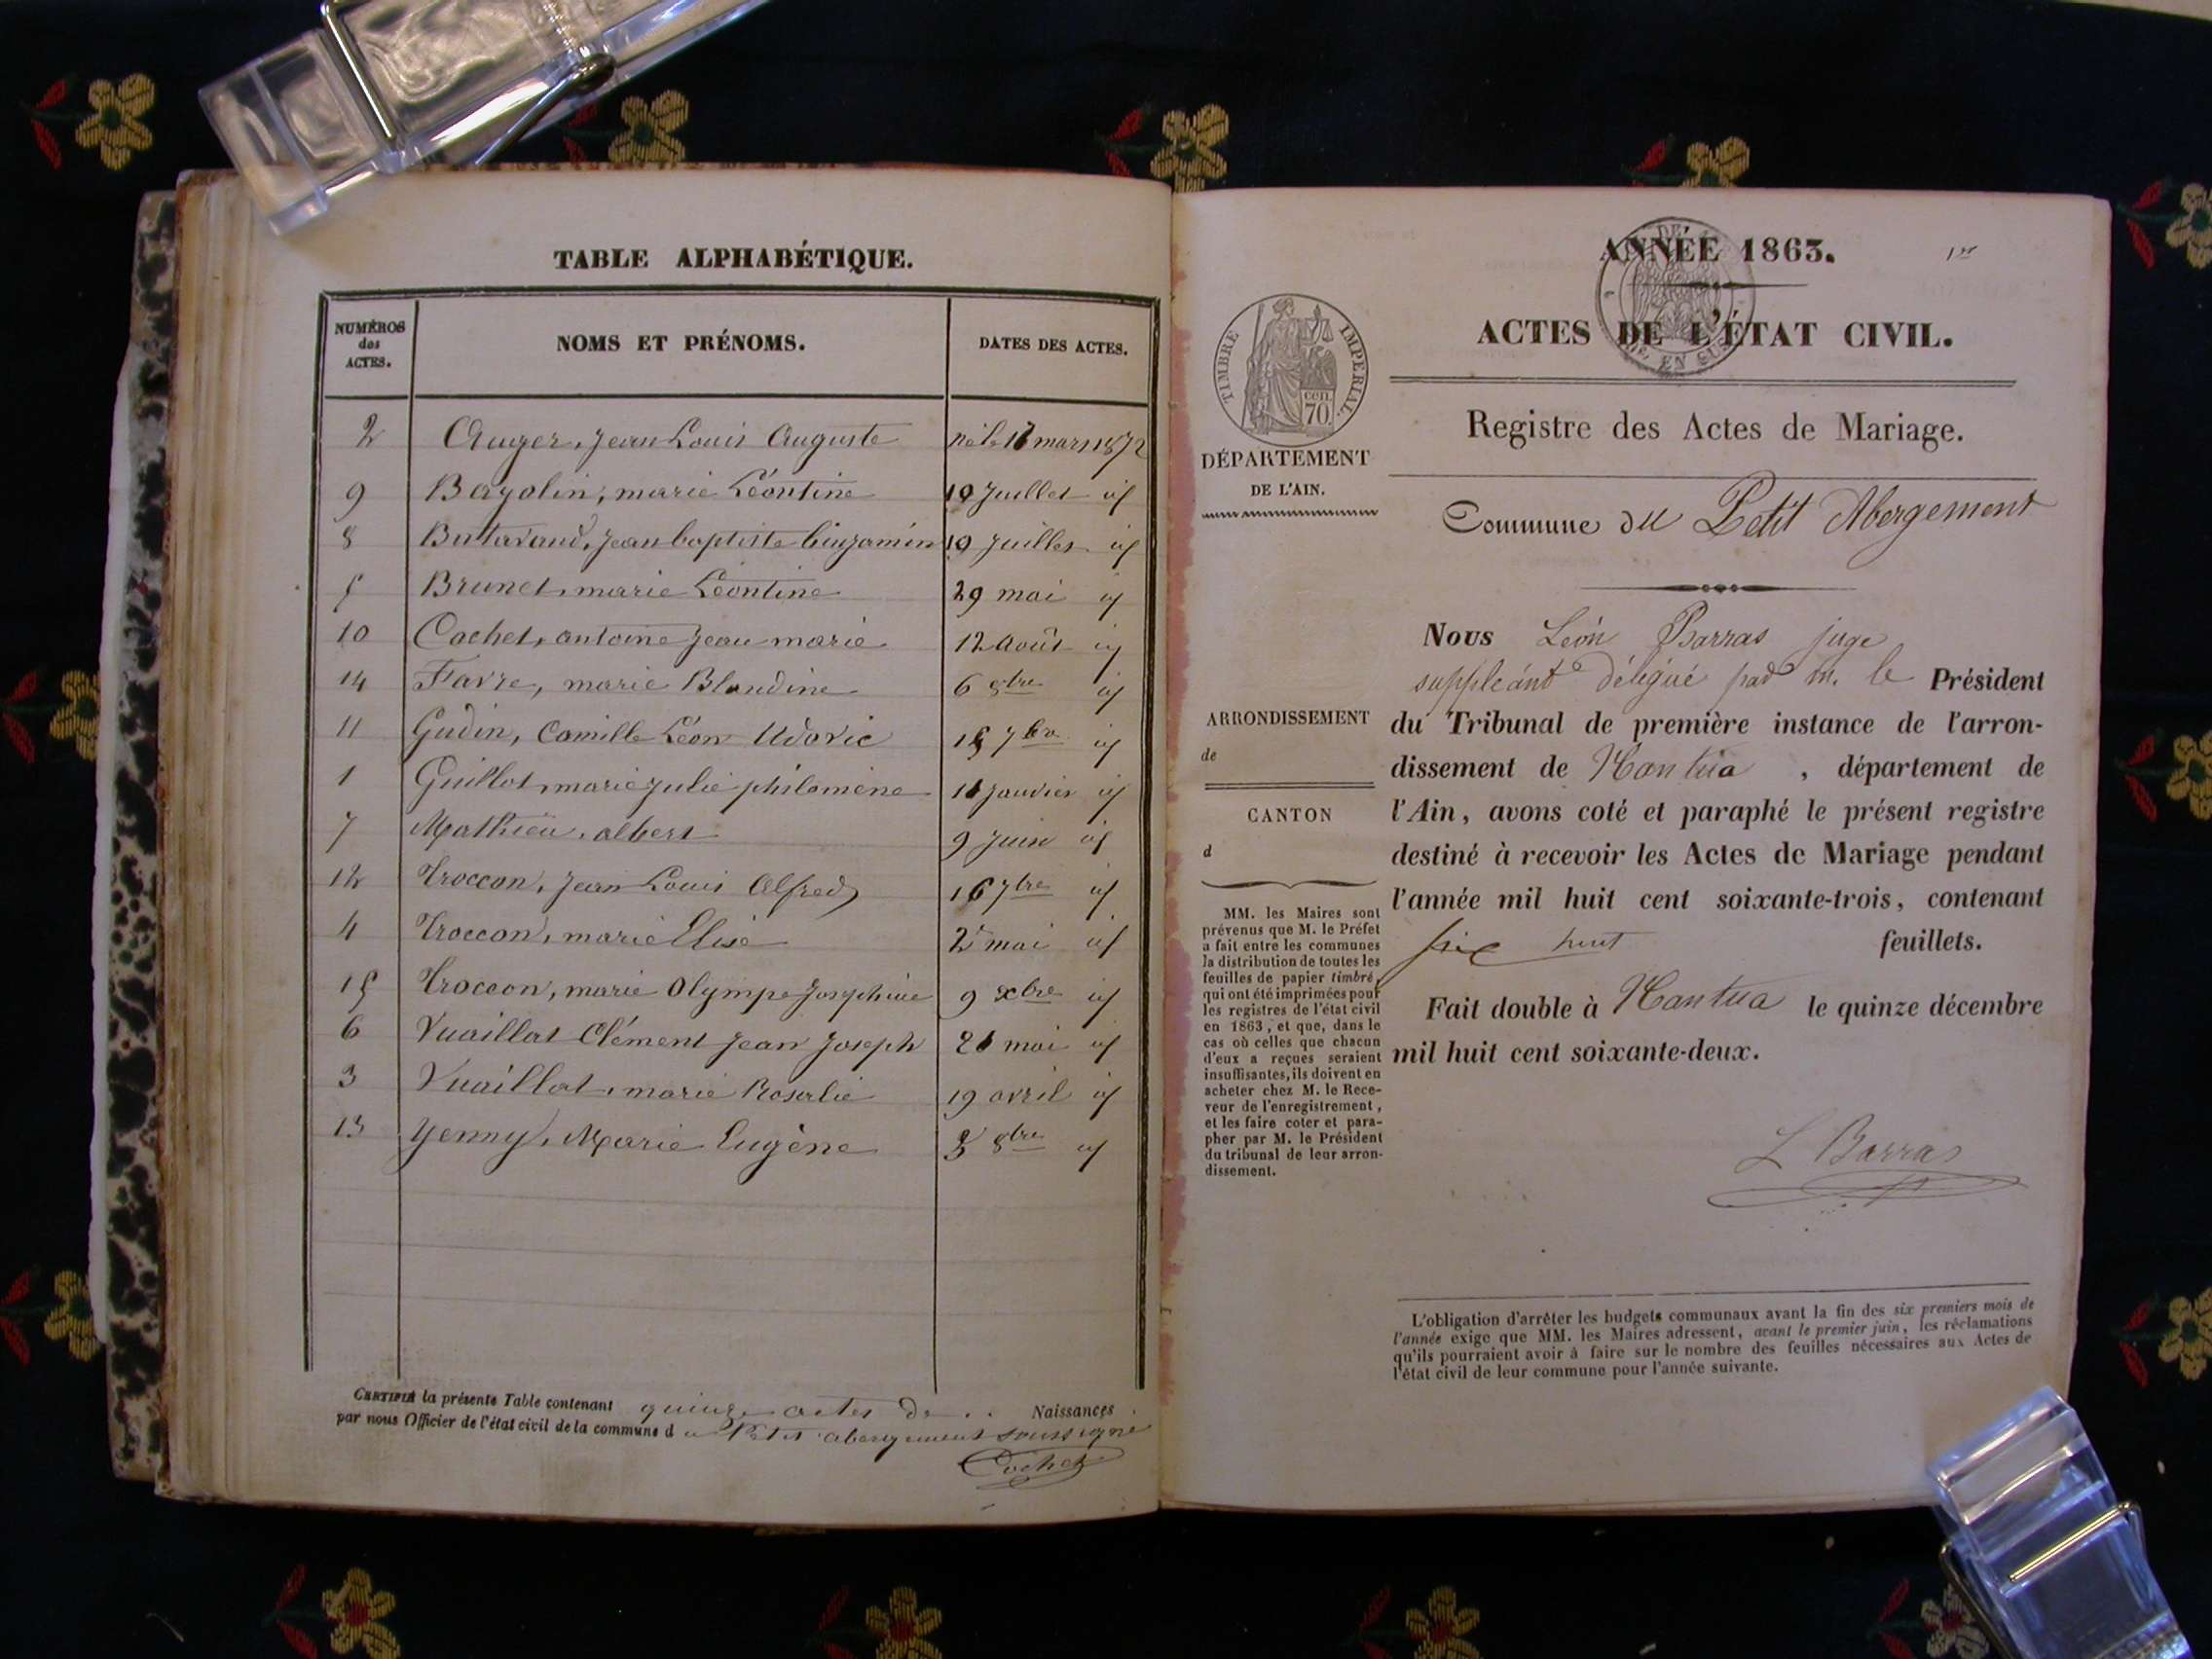 TABLE ALPHABÉTIQUE.
NUMÉROS des ACTES.
NOMS ET PRÉNOMS.
DATES DES ACTES.
2 Auger, Jean Louis Auguste né le mars 1872
9 Bayolin, marie Léontine 10 Juillet id
8 Jean baptiste binjamin 10 Juillet id
5 Brunet, marie Léontine 29 mai id
10 Cochet, antoine Jean marie 12 Août id
14 Favre, marie Blandine 6 8bre id
11 Gudin, Camille Léon Udoric 15 7bre id
1 Guillot, marie Julie philomène 11 Janvier id
7 Mathieu, albert 9 Juin id
12 Troccon, Jean Louis Alfred 16 7bre id
4 Troccon, marie Elise 2 mai id
15 Troccon, marie Olympe Josephine 9 xbre id
6 Vuaillat Clément Jean Joseph 21 mai id
3 Vuaillat, marie Rosalie 19 avril id
13 Yenny, Marie Eugène 3 8bre id
CERTIFIÉ la présente Table contenant quinze actes de Naissances
par nous Officier de l'état civil de la commune du Petit abergement soussigné
Cochet
ANNÉE 1863.
1er
ACTES DE L'ÉTAT CIVIL.
TIMBRE IMPERIAL.
CEN. 70
DÉPARTEMENT
DE L'AIN.
Registre des Actes de Mariage.
Commune du Petit Abergement
Nous Léon Barras juge
suppléant délégué par m. le Président
du Tribunal de première instance de l'arron-
dissement de Nantua, département de
l'Ain, avons coté et paraphé le présent registre
destiné à recevoir les Actes de Mariage pendant
l'année mil huit cent soixante-trois, contenant
huit feuillets.
Fait double à Nantua le quinze décembre
mil huit cent soixante-deux.
L Barras
ARRONDISSEMENT
de
CANTON
d
MM. les Maires sont
prévenus que M. le Préfet
a fait entre les communes
la distribution de toutes les
feuilles de papier timbré,
qui ont été imprimées pour
les registres de l'état civil
en 1863, et que, dans le
cas où celles que chacun
d'eux a reçues seraient
insuffisantes, ils doivent en
acheter chez M. le Rece-
veur de l'enregistrement,
et les faire coter et para-
pher par M. le Président
du tribunal de leur arron-
dissement.
L'obligation d'arrêter les budgets communaux avant la fin des six premiers mois de
l'année exige que MM. les Maires adressent, avant le premier juin, les réclamations
qu'ils pourraient avoir à faire sur le nombre des feuilles nécessaires aux Actes de
l'état civil de leur commune pour l'année suivante.